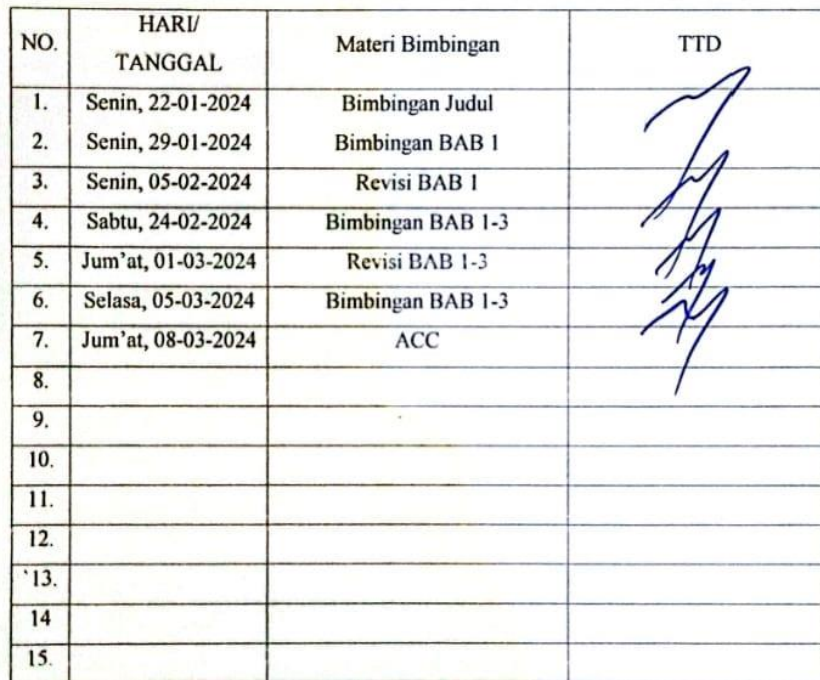 NO. HARI/ TANGGAL Materi Bimbingan TTD
1. Senin, 22-01-2024 Bimbingan Judul
2. Senin, 29-01-2024 Bimbingan BAB 1
3. Senin, 05-02-2024 Revisi BAB 1
4. Sabtu, 24-02-2024 Bimbingan BAB 1-3
5. Jum'at, 01-03-2024 Revisi BAB 1-3
6. Selasa, 05-03-2024 Bimbingan BAB 1-3
7. Jum'at, 08-03-2024 ACC
8.
9.
10.
11.
12.
`13.
14
15.